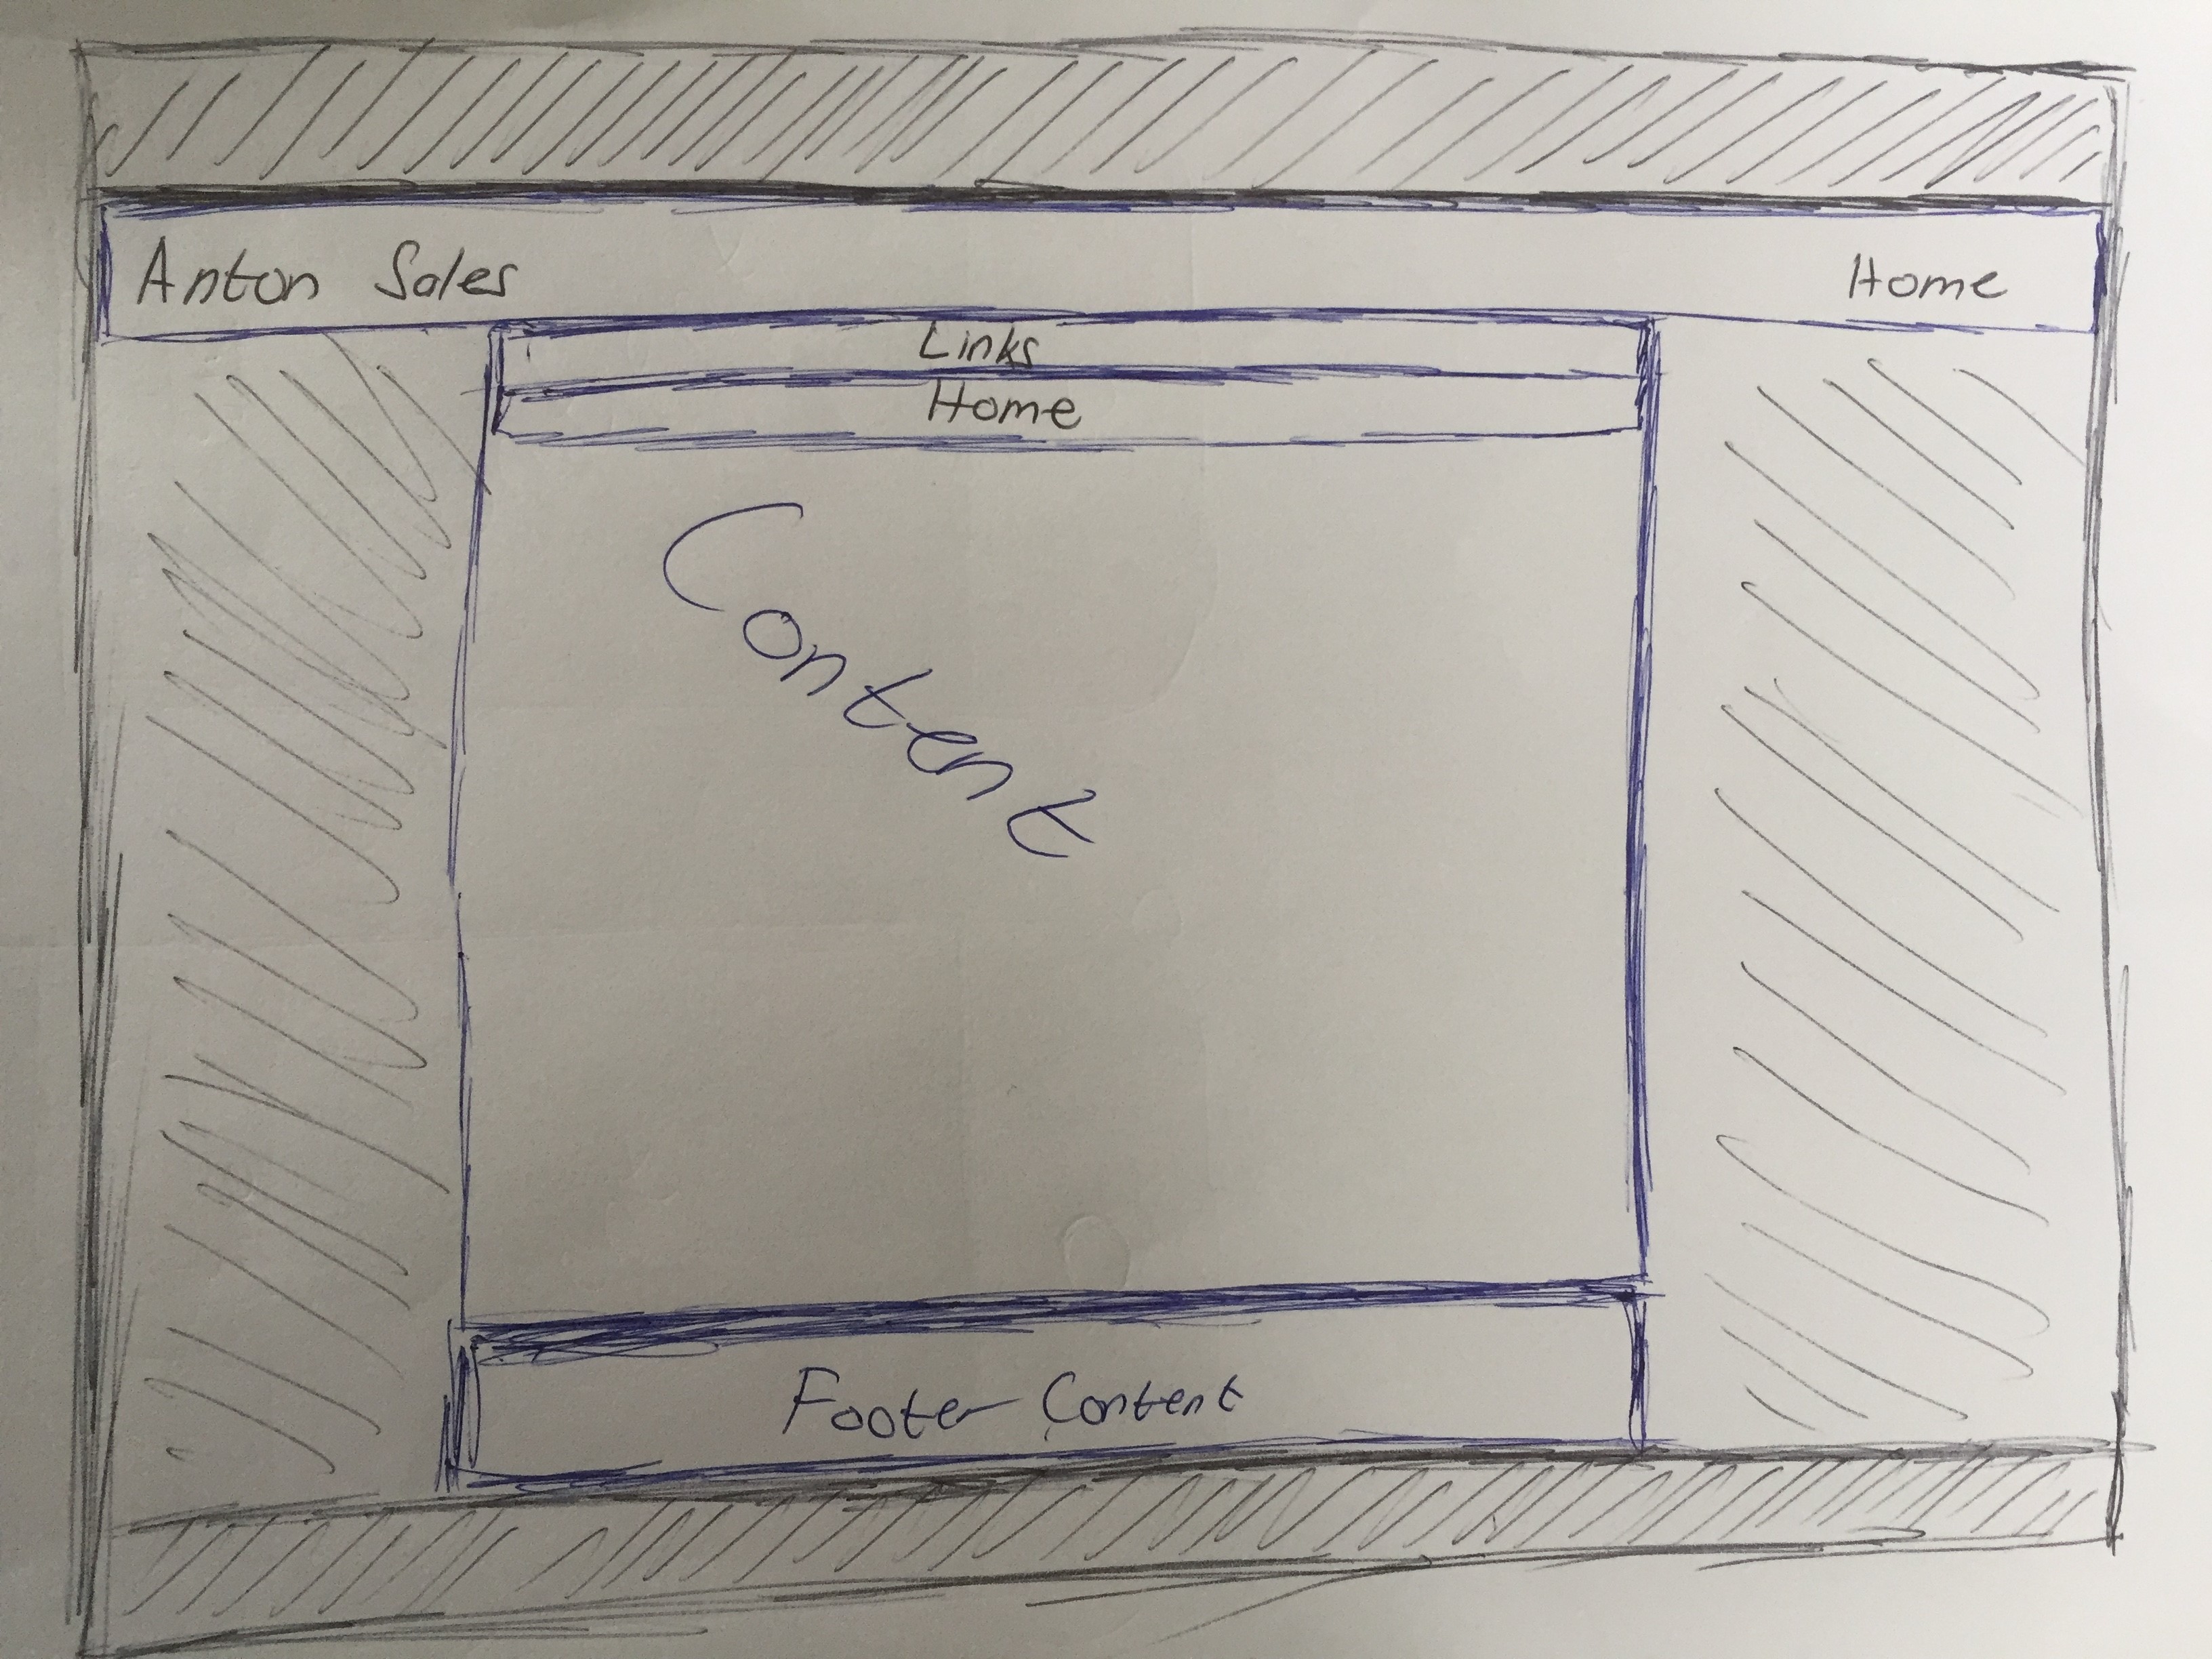 Anton Sales
Home
Links
Home
Content
Footer Content